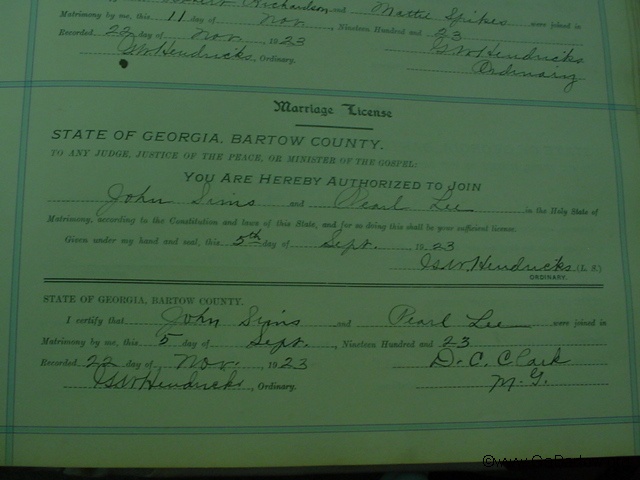 Richardson and Mattie Spikes were joined in
Matrimony by me, this 11 day of Nov. Nineteen Hundred and 23
Recorded, 22 day of Nov. 1923 GW Hendricks
GW Hendricks, Ordinary. Ordinary
Marriage License
STATE OF GEORGIA, BARTOW COUNTY.
TO ANY JUDGE, JUSTICE OF THE PEACE, OR MINISTER OF THE GOSPEL:
YOU ARE HEREBY AUTHORIZED TO JOIN
John Sims and Pearl Lee in the Holy State of
Matrimony, according to the Constitution and laws of this State, and for so doing this shall be your sufficient license.
Given under my hand and seal, this 5th day of Sept. 1923
GW Hendricks (L. S.)
ORDINARY.
STATE OF GEORGIA, BARTOW COUNTY.
I certify that John Sims and Pearl Lee were joined in
Matrimony by me, this 5 day of Sept., Nineteen Hundred and 23
Recorded, 22 day of Nov. 1923 D. C. Clark
GW Hendricks, Ordinary. M. G.